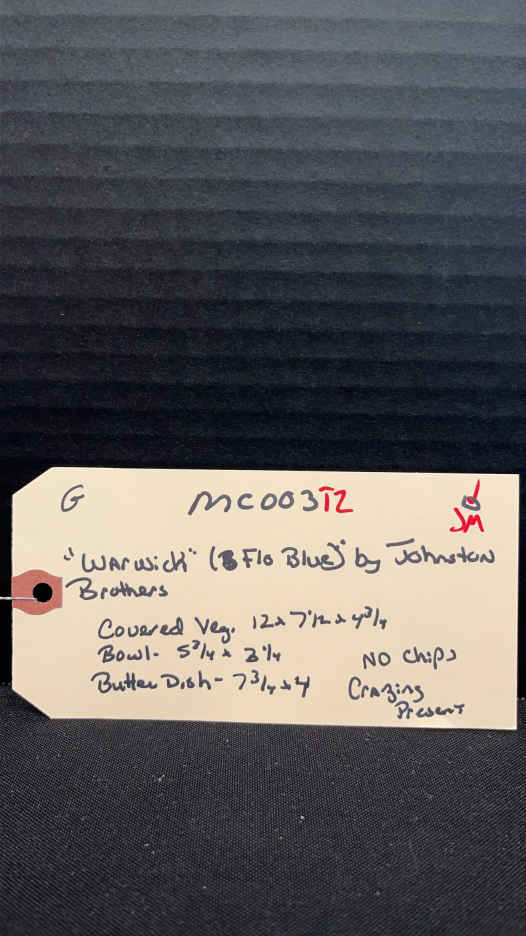 G MC003T2
JM
"Warwick" (Flo Blue) by Johnston
Brothers
Covered Veg. 12 x 7 1/2 x 4 3/4
Bowl- 5 3/4 x 3 1/4
NO Chips
Butter Dish- 7 3/4 x 4
Crazing
Present